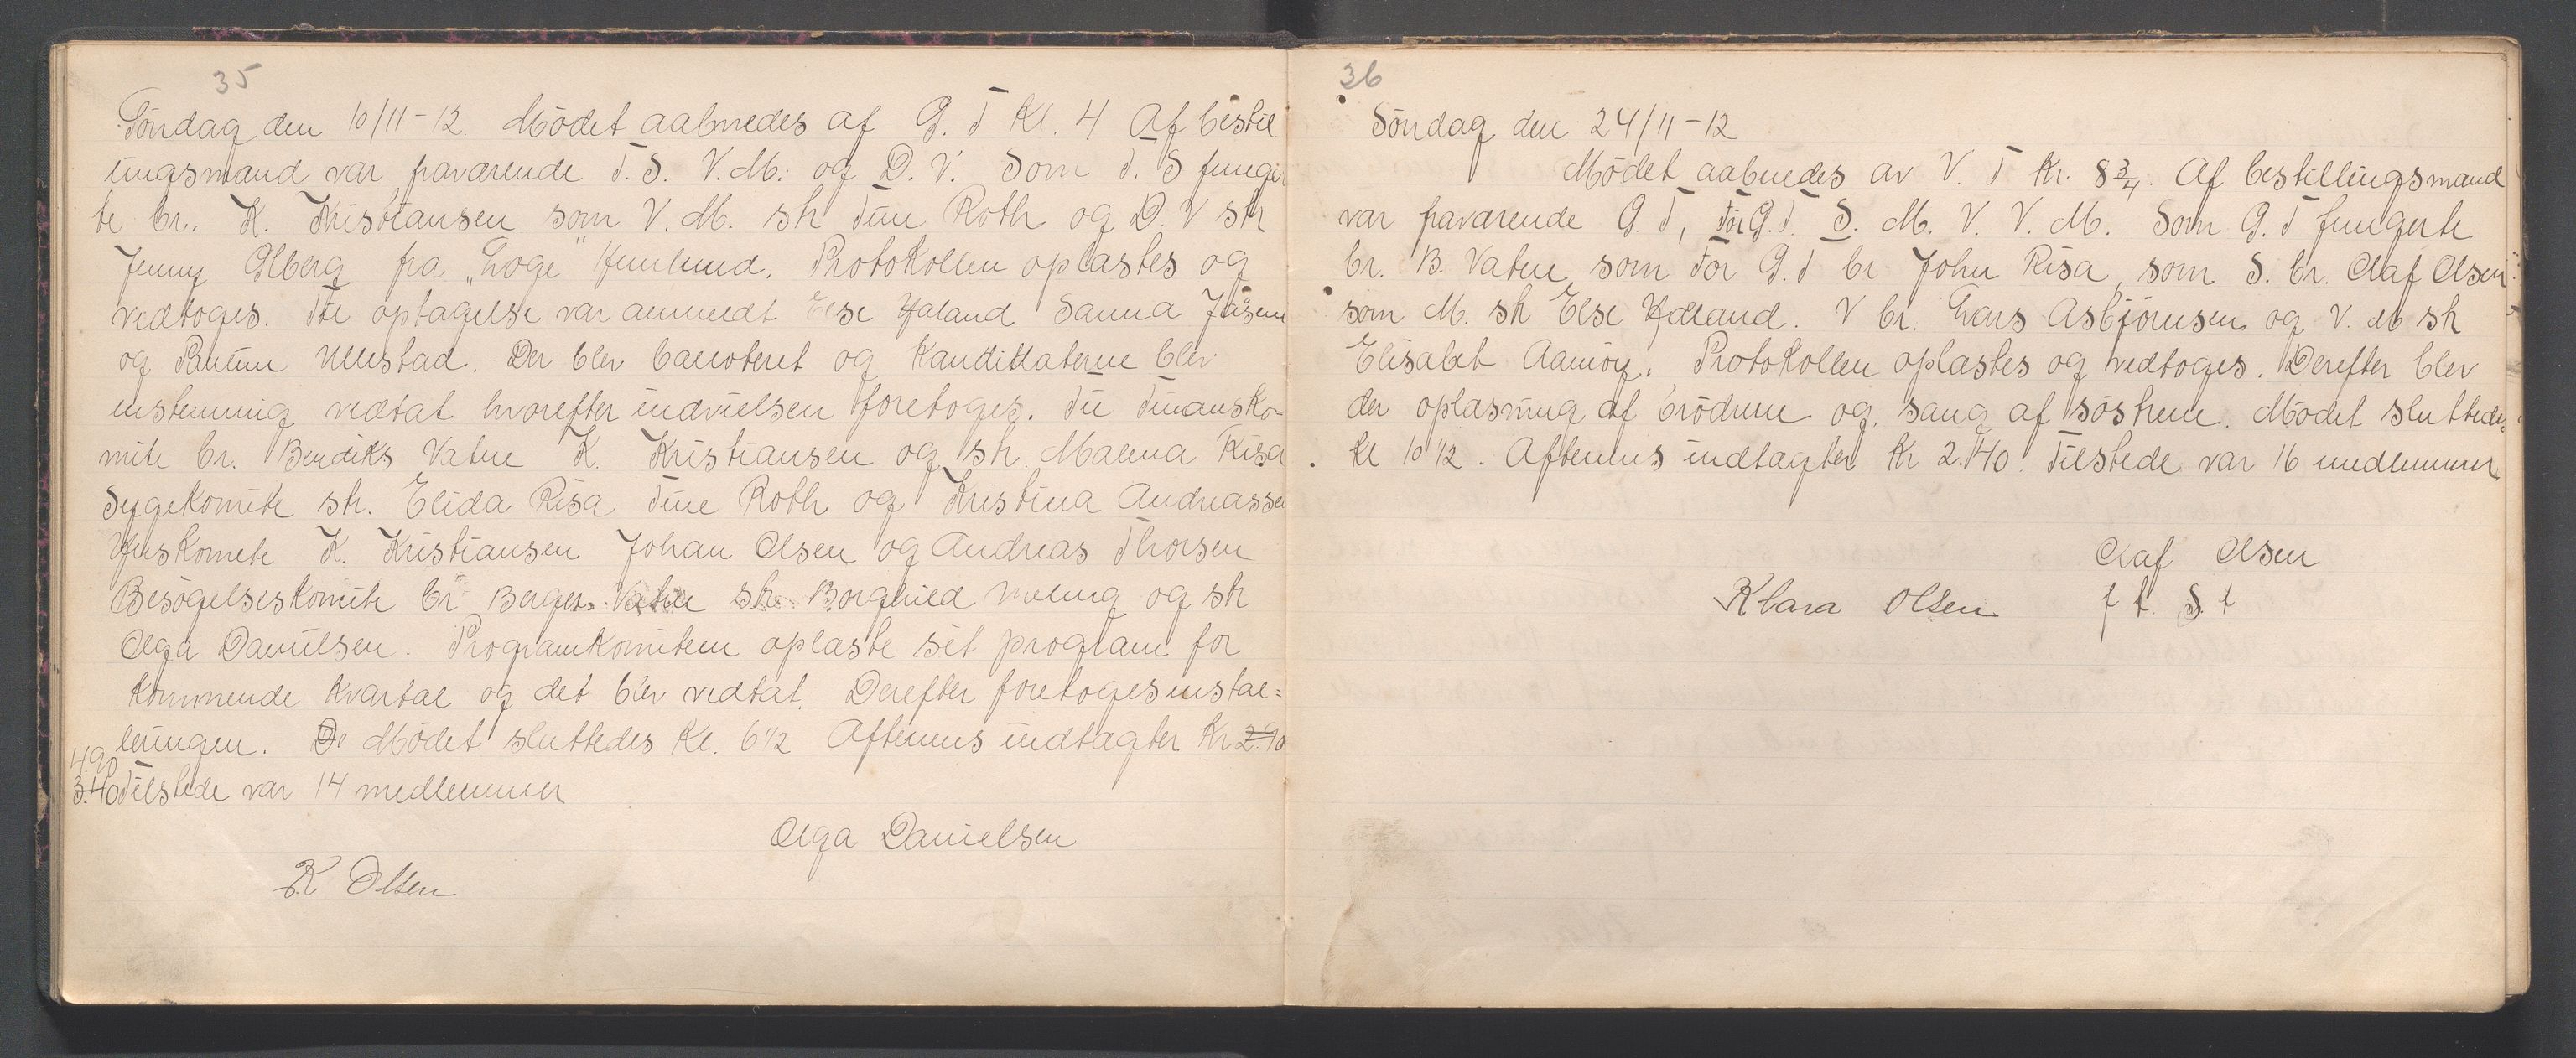 35
Söndag den 10/11-12. Mödet aabnedes af G. T Kl. 4 Af bestil
lingsmand var fraværende T. S. V. M. og D. V. Som T. S funger
te br. K. Kristiansen som V. M. str Tine Roth og D. V str
Jenny Olberg fra „Loge" Hemlund. Protokollen oplæstes og
vedtoges. Til optagelse var anmeldt Else Haland Sanna
og Ullestad. Der blev balloteret og Kandidaterne blev
enstemmig vedtat hvorefter indvielsen foretoges. Til Finansko-
mite br. Bendiks Vatne K. Kristiansen og str. Malena Risa
Sygekomite str. Elida Risa Tine Roth og Kristina Andreassen
Huskomite K. Kristiansen Johan Olsen og Andreas Thorsen
Besögelseskomite br Berger Vatne str. Borghild og str
Olga Danielsen. Programkomiteen oplæste sit program for
Kommende Kvartal og det blev vedtat. Derefter foretoges instal=
leringen. De Mödet sluttedes Kl. 6 1/2 Aftenens indtægter Kr 2.90
4.90
3.40 Tilstede var 14 medlemmer
Olga Danielsen
K Olsen
36
Söndag den 24/11-12
Mödet aabnedes av V. T Kr. 8 3/4. Af bestillingsmand
var fraværende G. T, For G. T. S. M. V. V. M. Som G. T fungerte
br. B. Vatne som For G. T br John Risa, som S. br. Olaf Olsen
som M. str Else Haaland. V br. Lars Asbjörnsen og V. M str
Elisabet Aamöy. Protokollen oplæstes og vedtoges. Derefter blev
der oplæsning af brödrene og sang af söstrene. Mödet sluttedes
Kl 10 1/2. Aftenens indtægter Kr 2.40. Tilstede var 16 medlemmer
Olaf Olsen
Klara Olsen f t. S. t